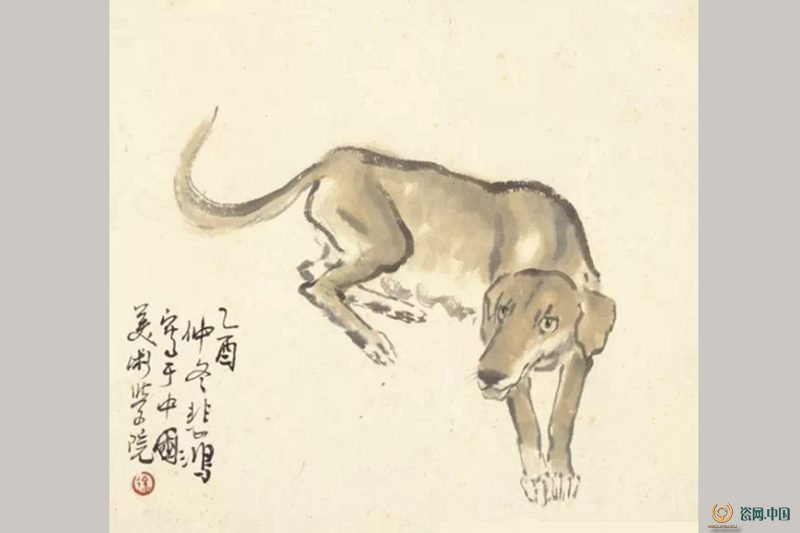 乙酉
仲冬悲鸿
写于中国
美术学院
徐
瓷网.中国